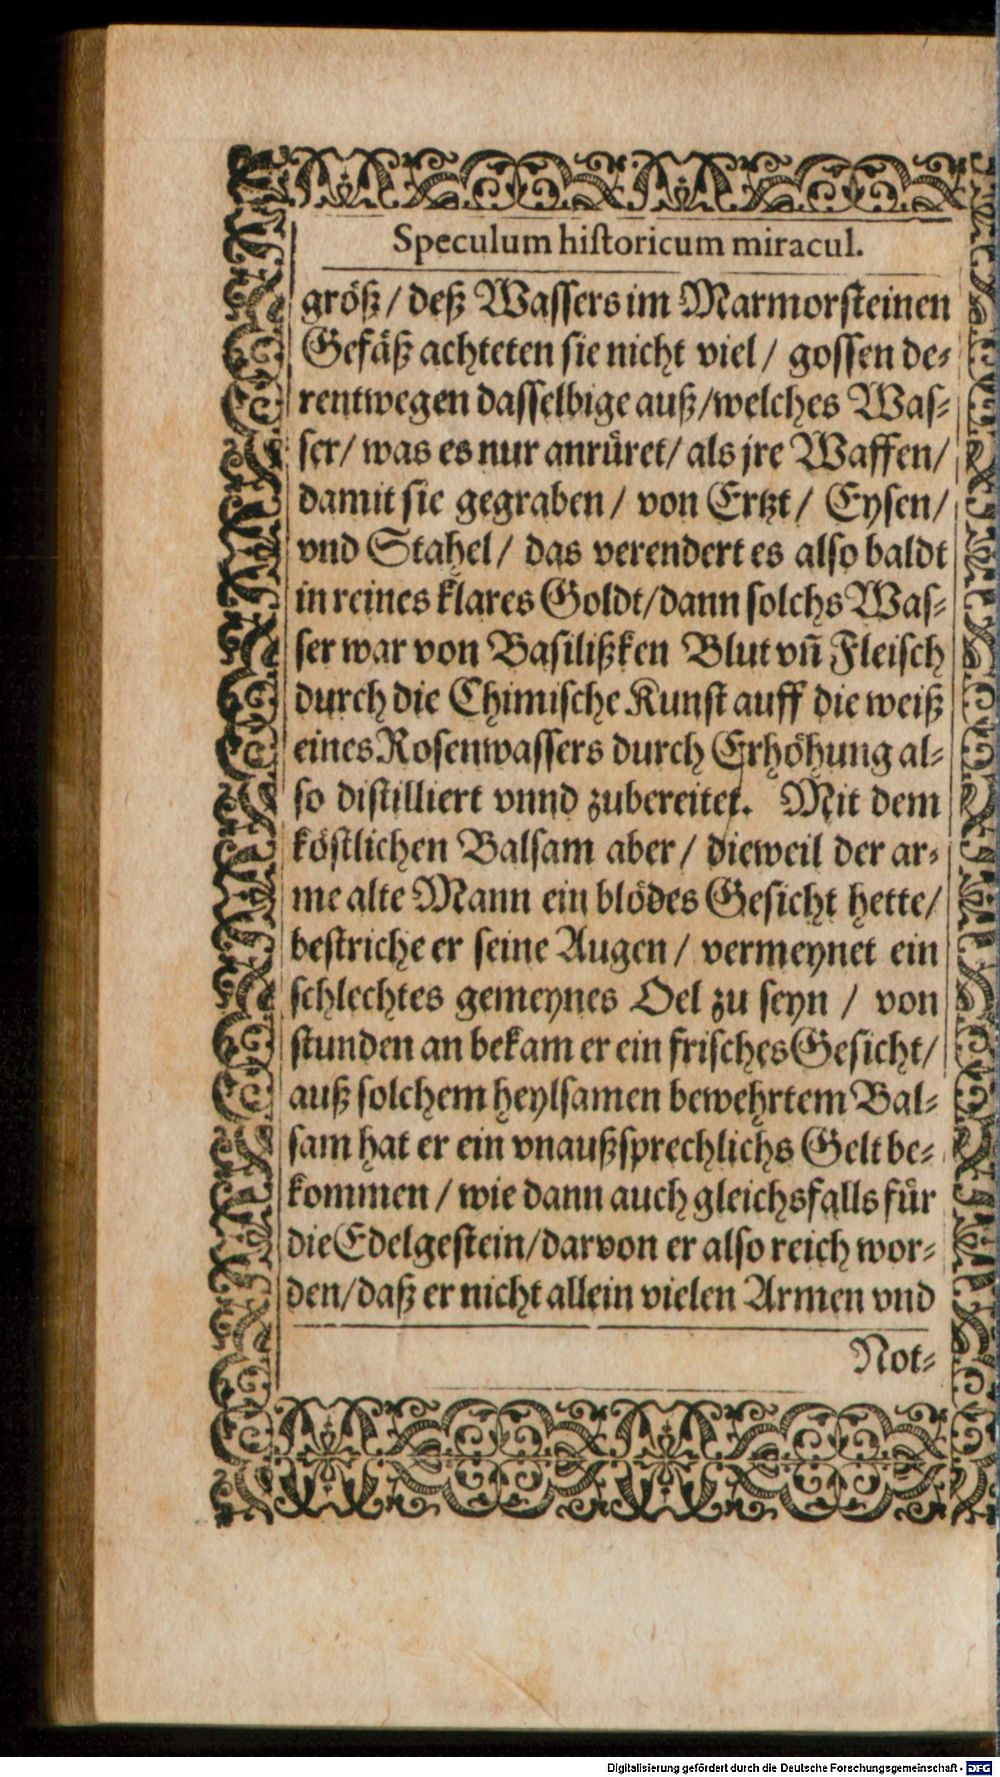 Speculum historicum miracul.
größ / deß Wassers im Marmorsteinen
Gefäß achteten sie nicht viel / gossen de-
rentwegen dasselbige auß / welches Was-
ser / was es nur anrüret / als jre Waffen /
damit sie gegraben / von Ertzt / Eysen /
vnd Stahel / das verendert es also baldt
in reines klares Goldt / dann solchs Was-
ser war von Basilißken Blut vñ Fleisch
durch die Chimische Kunst auff die weiß
eines Rosenwassers durch Erhöhung al-
so distilliert vnnd zubereitet. Mit dem
köstlichen Balsam aber / dieweil der ar-
me alte Mann ein blödes Gesicht hette /
bestriche er seine Augen / vermeynet ein
schlechtes gemeynes Oel zu seyn / von
stunden an bekam er ein frisches Gesicht /
auß solchem heylsamen bewehrtem Bal-
sam hat er ein vnaußsprechlichs Gelt be-
kommen / wie dann auch gleichsfalls für
die Edelgestein / darvon er also reich wor-
den / daß er nicht allein vielen Armen vnd
Not-
Digitalisierung gefördert durch die Deutsche Forschungsgemeinschaft - DFG